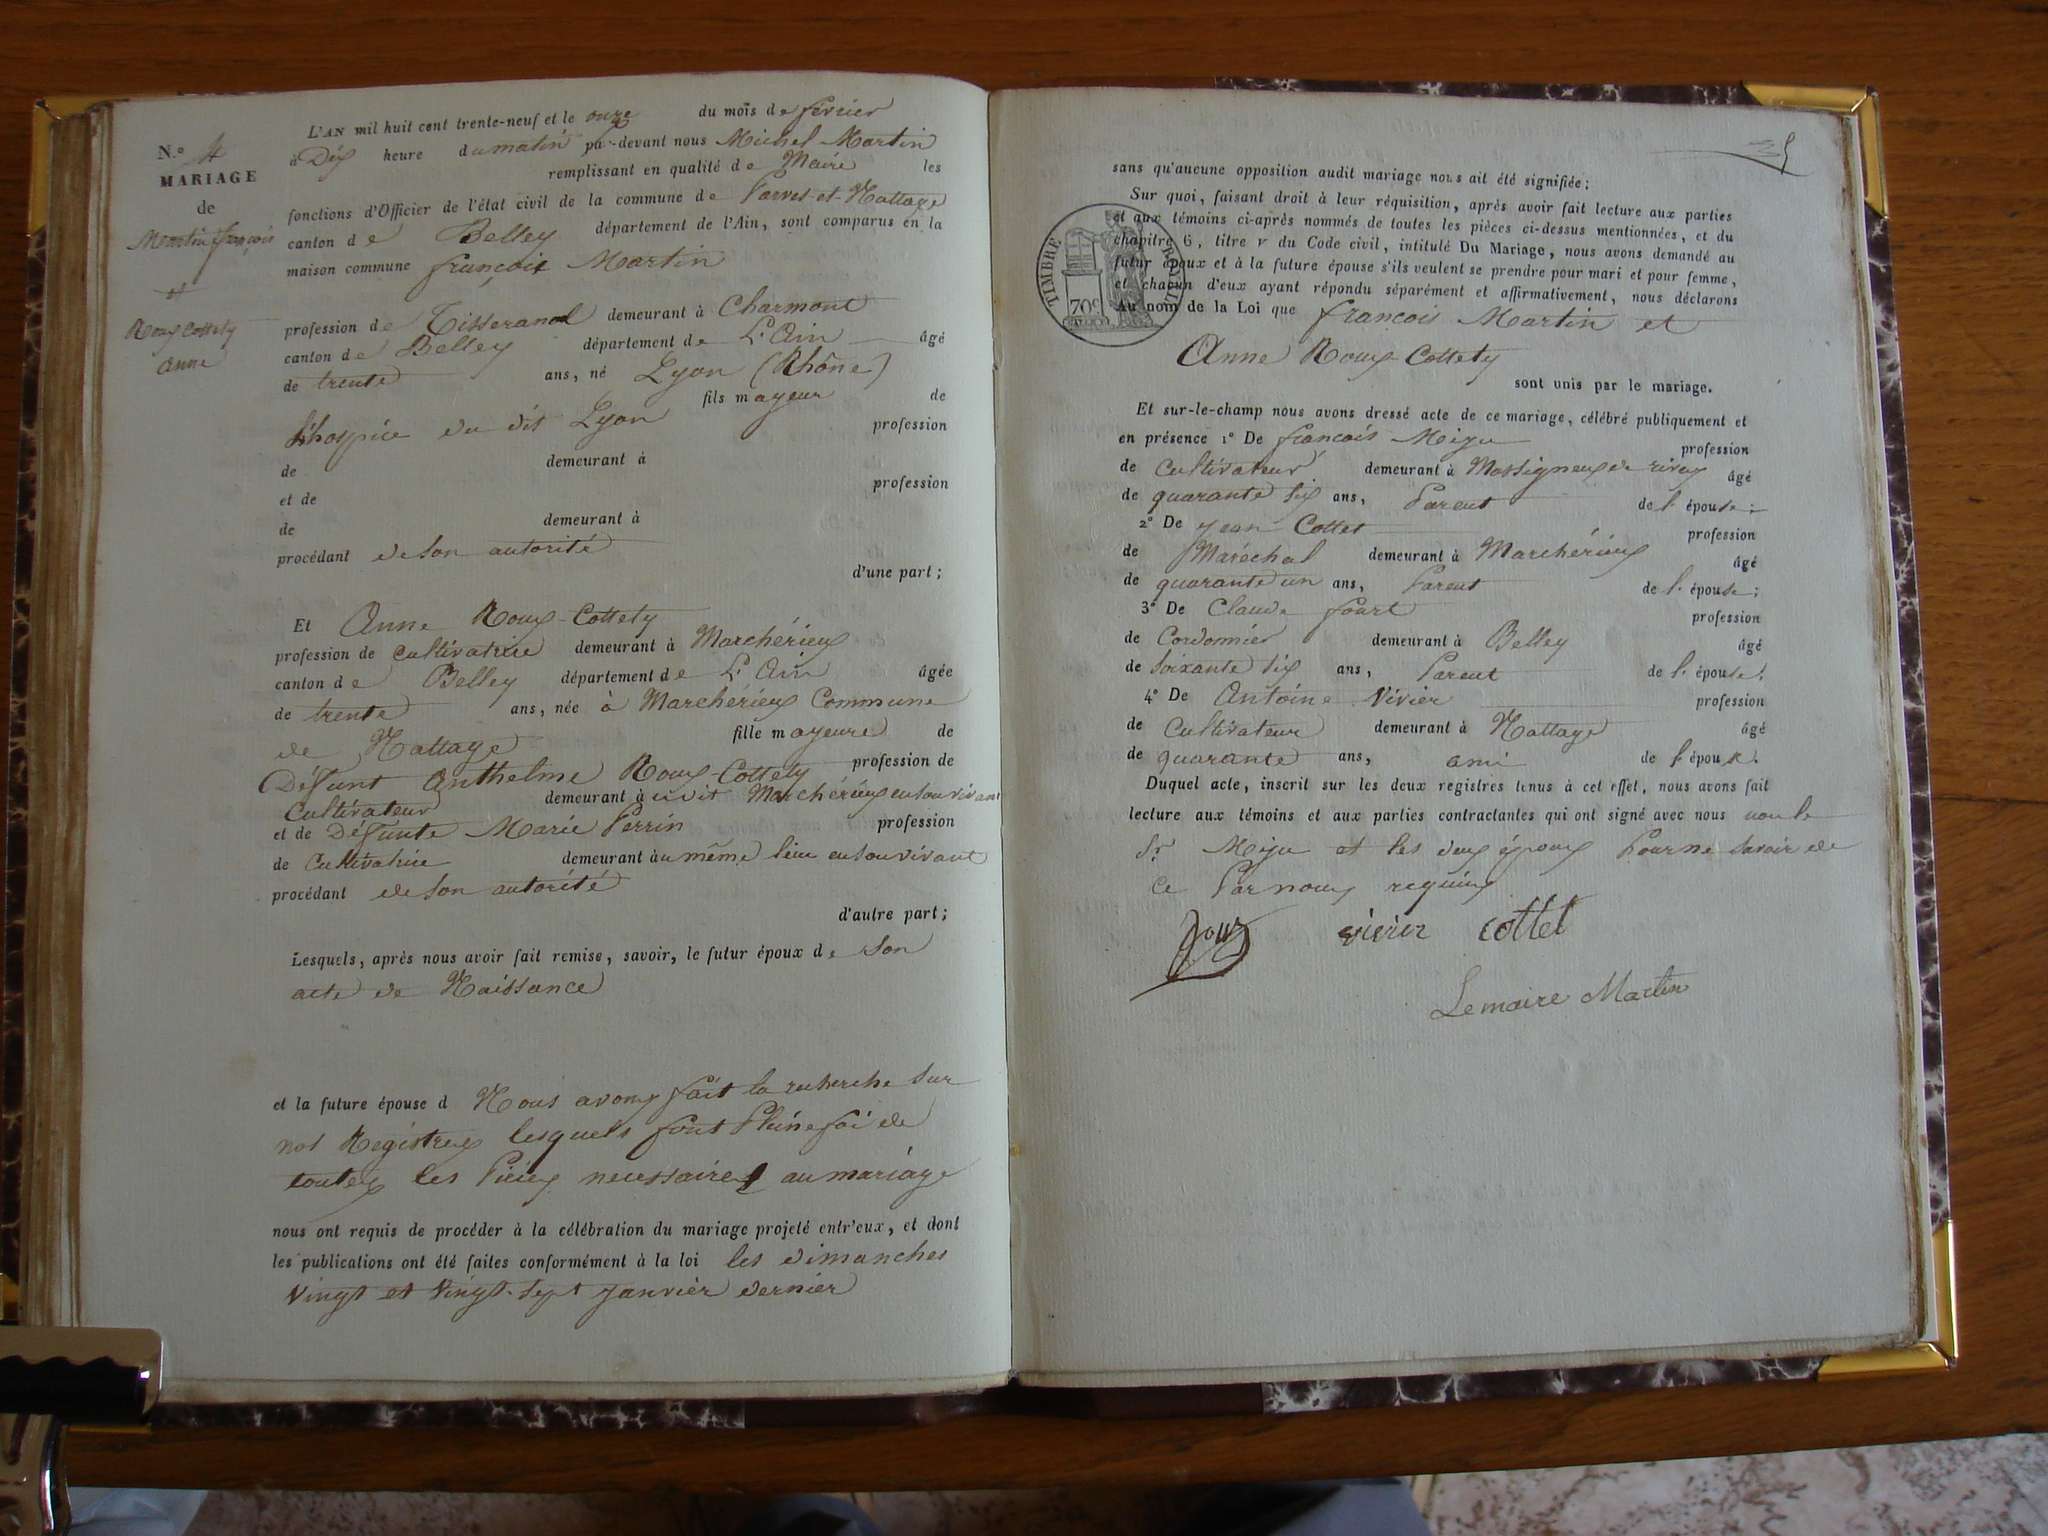 N.º 4
MARIAGE
de
Martin françois
et
Roux Cottety
anne
L'AN mil huit cent trente-neuf et le onze du mois de février
à Dix heure du matin par-devant nous Michel Martin
remplissant en qualité de Maire les
fonctions d'Officier de l'état civil de la commune de Parves-et-Nattage
canton de Belley département de l'Ain, sont comparus en la
maison commune françois Martin
profession de Tisserand demeurant à Charmont
canton de Belley département de L'Ain âgé
de trente ans, né Lyon (Rhône)
fils mayeur de
L'hospice du dit Lyon profession
de demeurant à
et de profession
de demeurant à
procédant de son autorité
d'une part;
Et Anne Roux-Cottety
profession de cultivatrice demeurant à Marchérieux
canton de Belley département de L'Ain âgée
de trente ans, née à Marchérieux Commune
de Nattage fille mayeure de
Défunt Anthelme Roux-Cottety profession de
Cultivateur demeurant à udit Marchérieux en son vivant
et de Défunte Marie Perrin profession
de Cultivatrice demeurant au même lieu en son vivant
procédant de son autorité
d'autre part;
Lesquels, après nous avoir fait remise, savoir, le futur époux de son
acte de Naissance
et la future épouse d Nous avons fait la recherche sur
nos Registres lesquels font Pleine foi de
toutes les Pièces necessaires au mariage
nous ont requis de procéder à la célébration du mariage projeté entr'eux, et dont
les publications ont été faites conformément à la loi les dimanches
vingt et vingt-sept janvier dernier
sans qu'aucune opposition audit mariage nous ait été signifiée;
Sur quoi, faisant droit à leur réquisition, après avoir fait lecture aux parties
et aux témoins ci-après nommés de toutes les pièces ci-dessus mentionnées, et du
chapitre 6, titre v du Code civil, intitulé Du Mariage, nous avons demandé au
futur époux et à la future épouse s'ils veulent se prendre pour mari et pour femme,
et chacun d'eux ayant répondu séparément et affirmativement, nous déclarons
Au nom de la Loi que francois Martin et
Anne Roux-Cottety
sont unis par le mariage.
TIMBRE ROYAL
70c
Et sur-le-champ nous avons dressé acte de ce mariage, célébré publiquement et
en présence 1º De françois Miju profession
de Cultivateur demeurant à Massigneux de rives âgé
de quarante six ans, Parent de l'épouse;
2º De Jean Cottet profession
de Maréchal demeurant à Marchérieux âgé
de quarante un ans, Parent de l'épouse;
3º De Claude profession
de Cordonnier demeurant à Belley âgé
de soixante six ans, Parent de l'épouse;
4º De Antoine Vivier profession
de Cultivateur demeurant à Nattage âgé
de quarante ans, ami de l'époux.
Duquel acte, inscrit sur les deux registres tenus à cet effet, nous avons fait
lecture aux témoins et aux parties contractantes qui ont signé avec nous non le
Sr Miju et les deux époux Pour ne savoir de
ce Par nous requis
vivier cottet
Le maire Martin